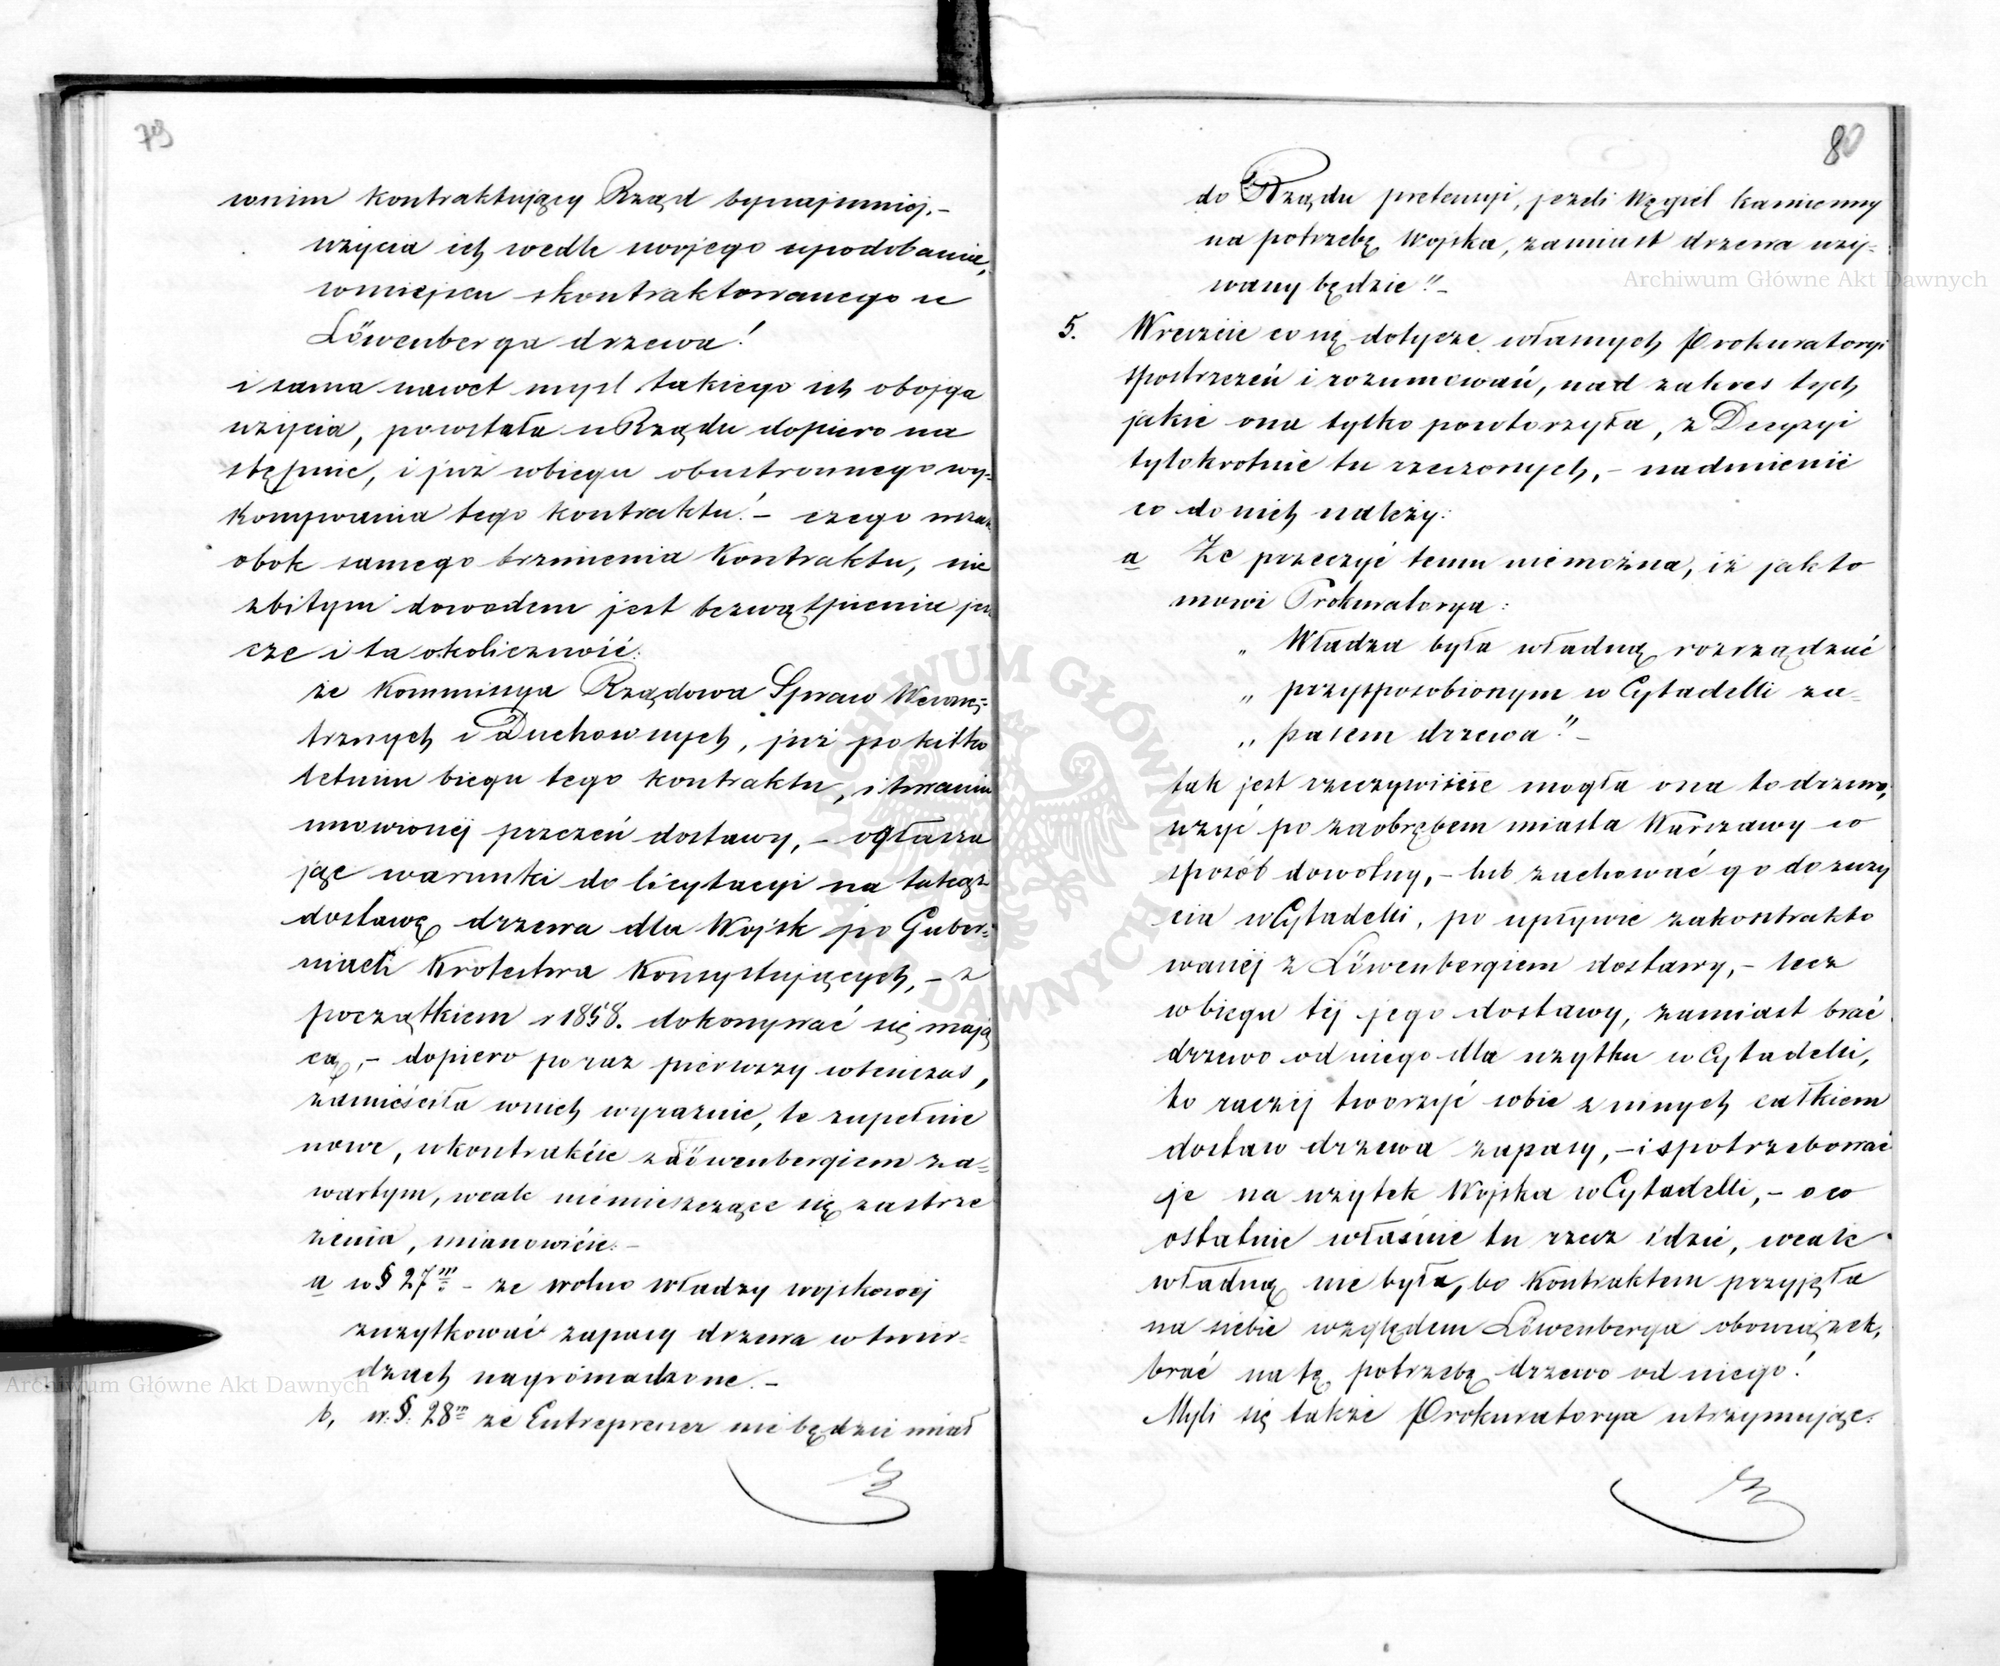 79
wnim kontraktujący Rząd bynajmniej,-
użycia ich wedle swojego upodobania,
wmiejscu skontraktowanego u
Löwenberga drzewa!
i sama nawet myśl takiego ich obojga
użycia, powstała u Rządu dopiero na
stępnie, i już wbiegu obustronnego wy-
konywania tego kontraktu! - czego
obok samego brzmienia Kontraktu, nie
zbitym dowodem jest bezwątpienia jes
cze i ta okoliczność:
że Kommissya Rządowa Spraw Wewnę-
trznych i Duchownych, już po kilko
letnim biegu tego kontraktu, i trwaniu
umowionéj przezeń dostawy, - ogłasza
jąc warunki do licytacyi na takąż
dostawę drzewa dla Wojsk po Guber-
niach Krolestwa Konsystujących, - z
początkiem r 1858. dokonywać się mają
cą, - dopiero po raz pierwszy wtenczas,
zamieściła wnich wyraznie, te zupełnie
nowe, wkontrakcie z Löwenbergiem za-
wartym, wcale niemieszczące się zastrze
żenia, mianowicie: -
a w § 27m - że wolno władzy wojskowej
zużytkować zapasy drzewa w twier-
dzach nagromadzone. -
b, w. §. 28m że Entreprener nie będzie miał
80
do Rządu pretensyi, jeżeli Węgiel kamienny
na potrzebę Wojska, zamiast drzewa uży-
wany będzie!" -
5. Wreszcie co się dotycze własnych Prokuratoryi
spostrzeżeń i rozumowań, nad zakres tych
jakie ona tylko powtorzyła, z Decyzyi
tylokrotnie tu rzeczonych, - nadmienić
co do nich należy:
a Że przeczyć temu niemożna, iż jak to
mowi Prokuratorya:
„ Władza była władną rozrządzać
„ przysposobionym w Cytadelli za-
„ pasem drzewa." -
tak jest rzeczywiście mogła ona to drzewo,
użyć po zaobrębem miasta Warszawy w
sposób dowolny, - lub zachować go do zuży
cia w Cytadelli, po upływie zakontrakto
wanéj z Löwenbergiem dostawy, - lecz
wbiegu téj jego dostawy, zamiast brać
drzewo od niego dla użytku w Cytadelli,
to raczéj tworzyć sobie z innych całkiem
dostaw drzewa zapasy, - i spotrzebować
je na użytek Wojska w Cytadelli, - o co
ostatnie właśnie tu rzecz idzie, wcale
władną nie była, bo Kontraktem przyjęła
na siebie względem Löwenberga obowiązek,
brać na tę potrzebę drzewo od niego!
Myli się także Prokuratorya utrzymując:
Archiwum Główne Akt Dawnych
Archiwum Główne Akt Dawnych
ARCHIWUM GŁÓWNE AKT DAWNYCH